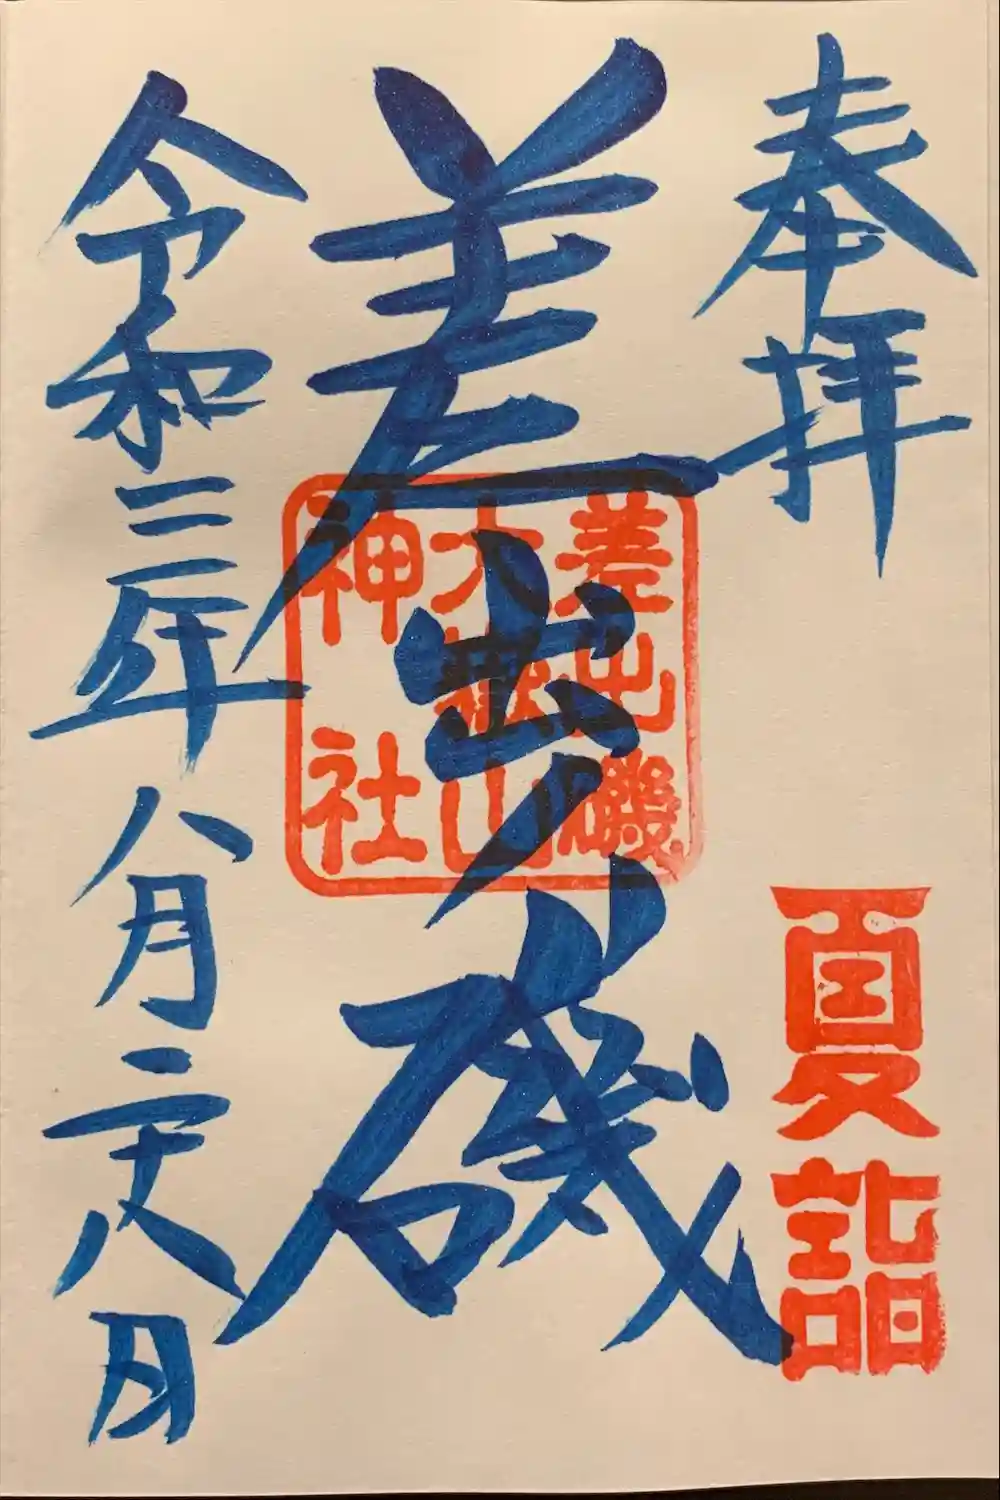 奉拝
夏詣
差出ノ磯
差出磯
大嶽山
神社
令和二年八月二十八日